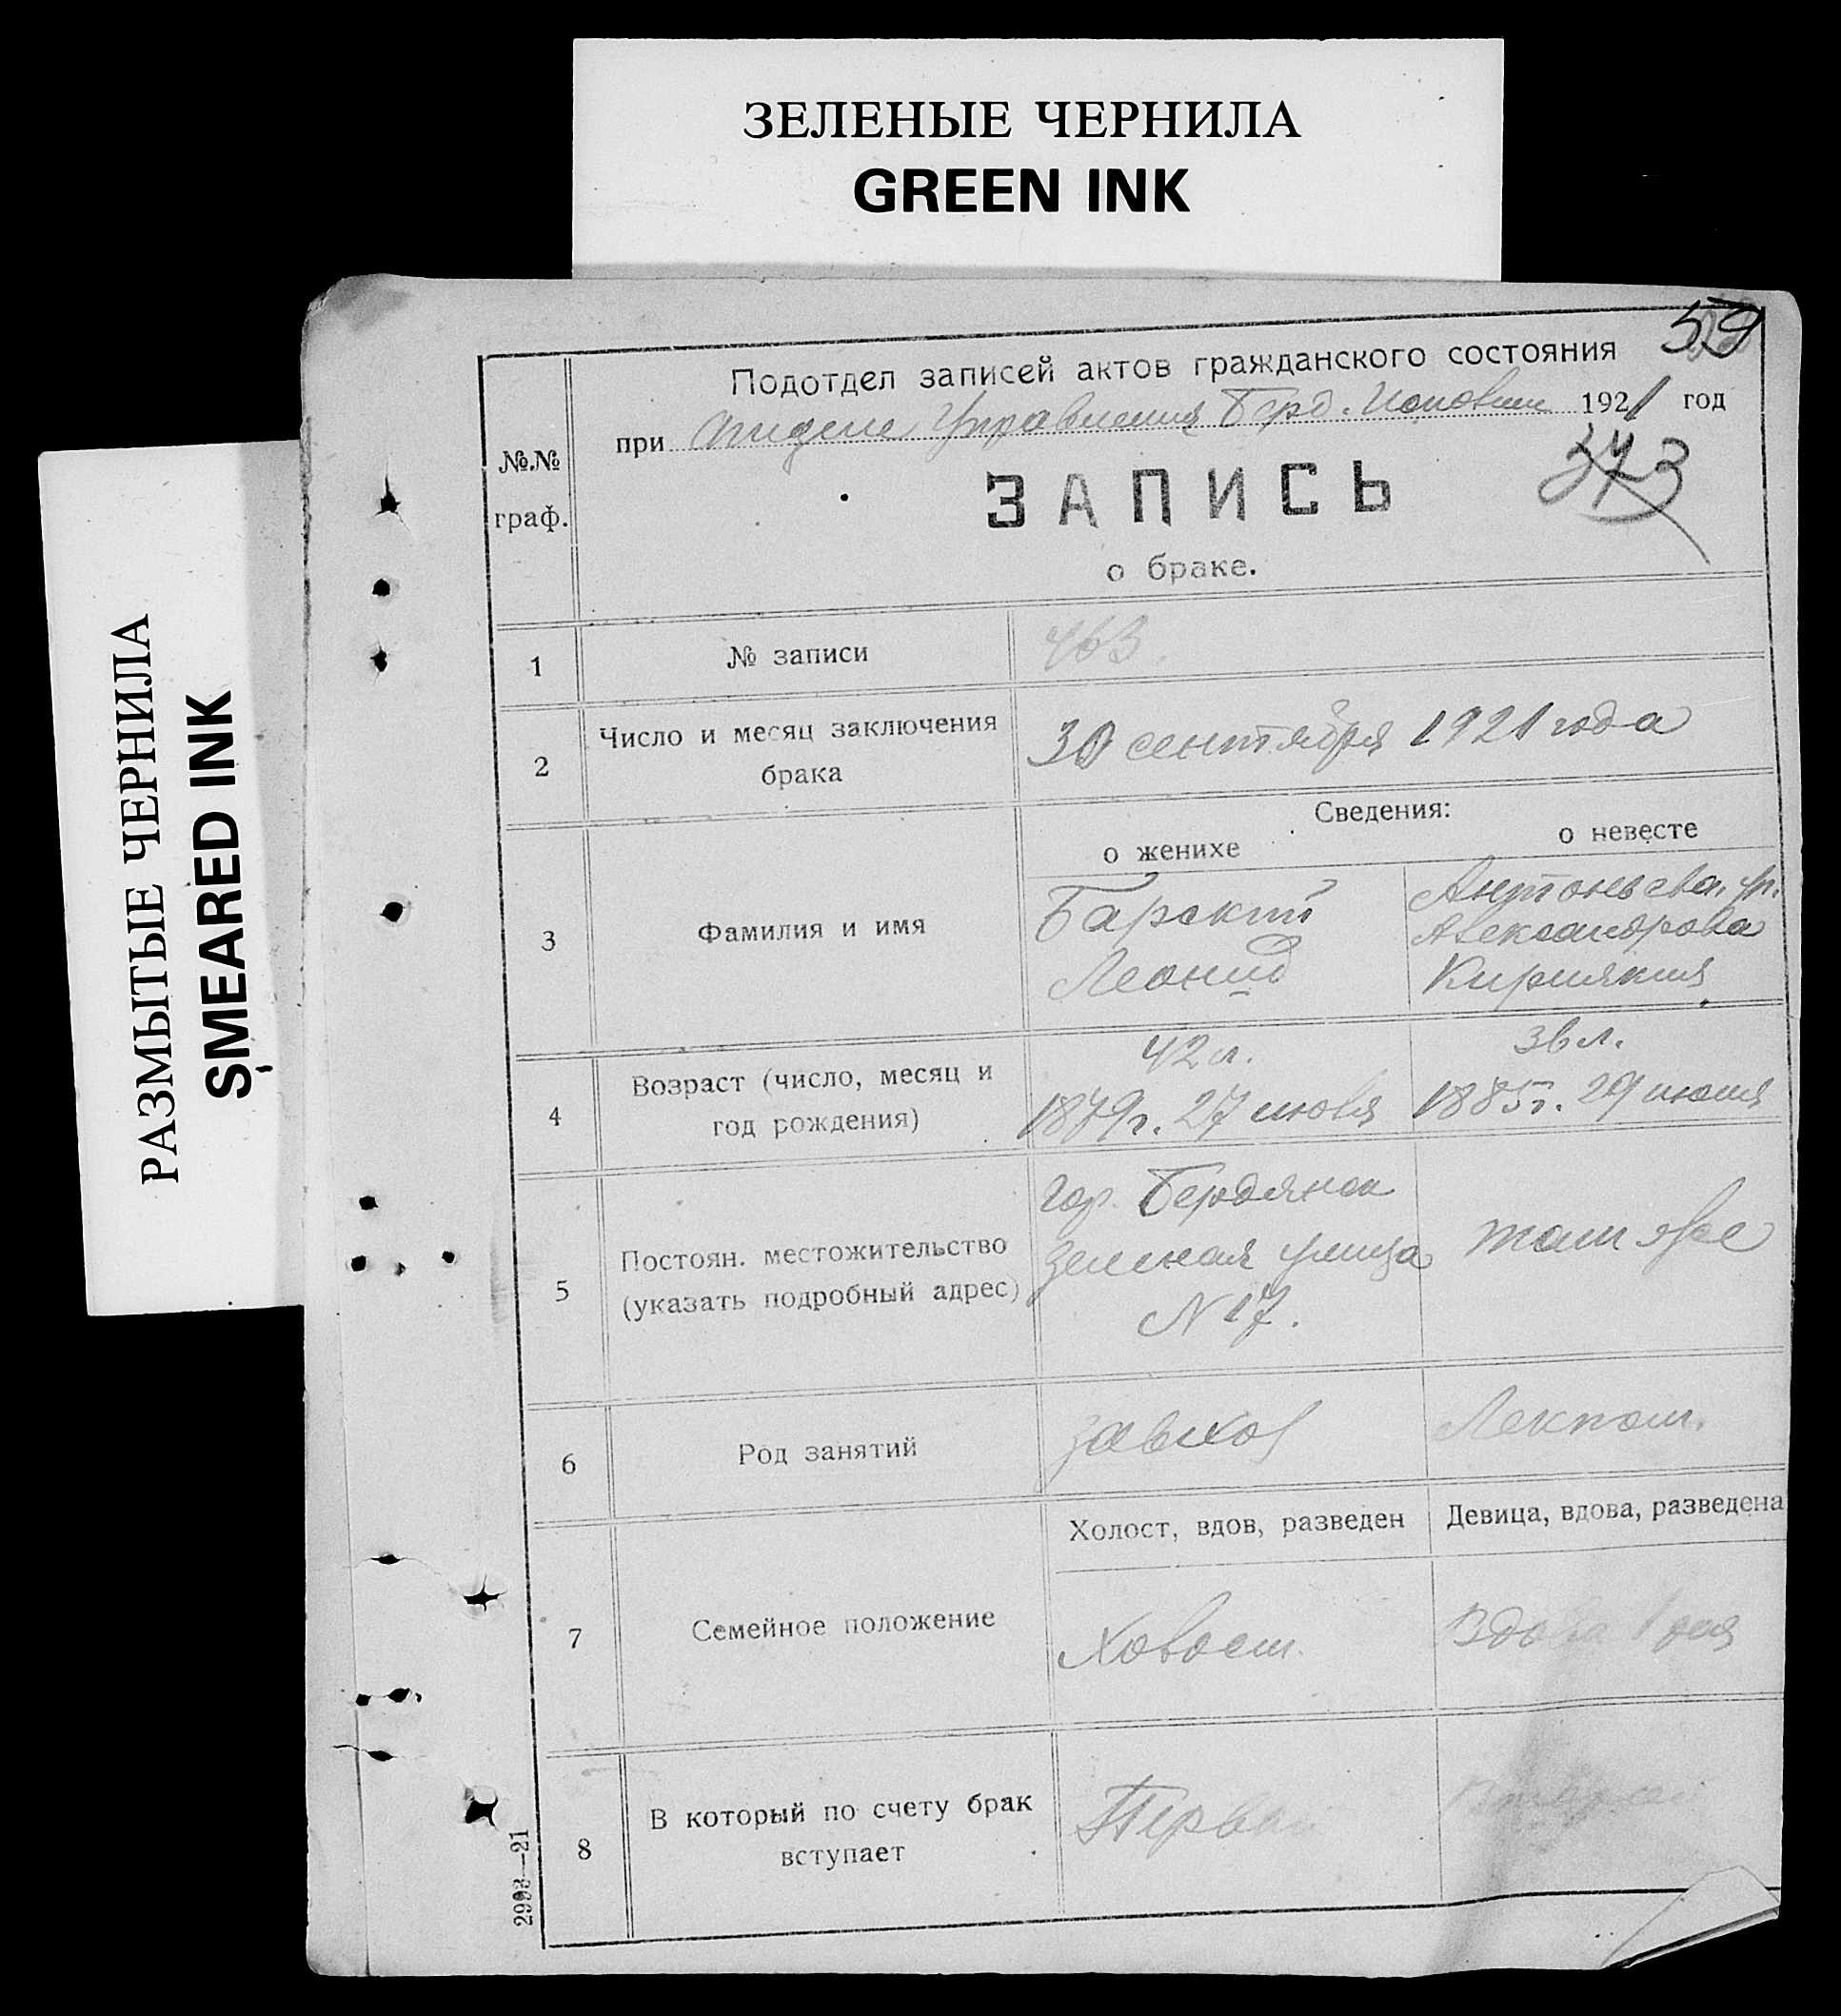 ЗЕЛЕНЫЕ ЧЕРНИЛА
GREEN INK
РАЗМЫТЫЕ ЧЕРНИЛА
SMEARED INK
59
№.№ граф.
Подотдел записей актов гражданского состояния
при Отделе Управления Берд. 1921 год
373
ЗАПИСЬ
о браке.
1
№ записи
463
2
Число и месяц заключения
брака
30 сентября 1921 года
Сведения:
о женихе
о невесте
3
Фамилия и имя
Барский
Леонид
Антоньева, ур.
Александрова
Кириякия
4
Возраст (число, месяц и
год рождения)
42 л.
1879г. 27 июля
36 л.
1885г. 29 июня
5
Постоян. местожительство
(указать подробный адрес)
гор. Бердянск
Зеленая улица
N 17.
там же
6
Род занятий
завхоз
7
Семейное положение
Холост, вдов, разведен
Девица, вдова, разведена
Холост.
Вдова
8
В который по счету брак
вступает
Первый
2993—21